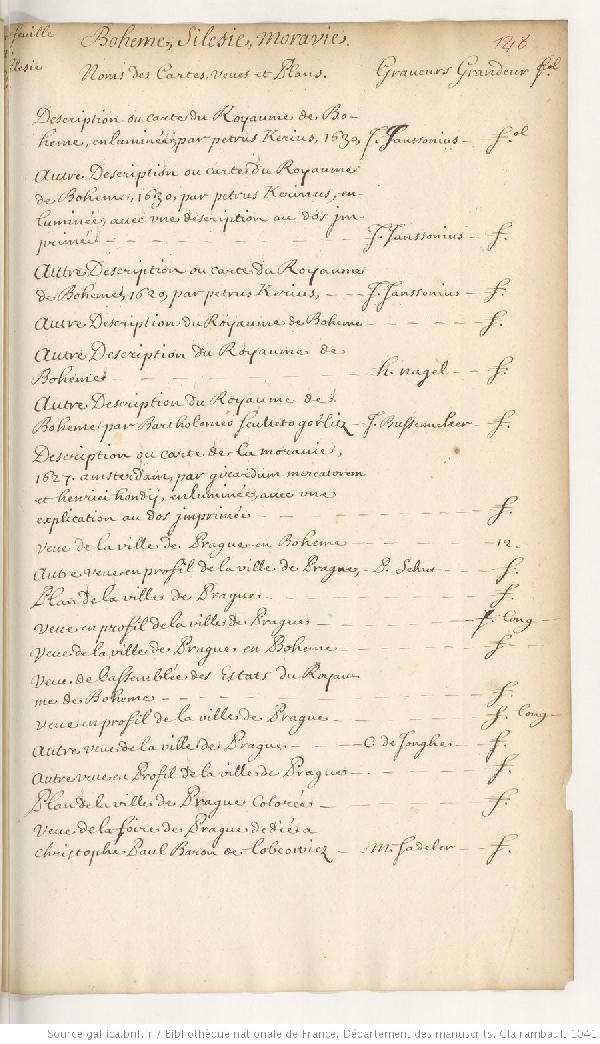 feuille
Boheme, Silesie, Moravie.
148
Silesie
Noms des Cartes, veues et Plans. Graveurs Grandeur fol
Description ou carte du Royaume de Bo-
heme, enluminée, par petrus Kerius, 1630, J. Janssonius - fol
Autre Description ou carte du Royaume
de Boheme, 1630, par petrus Kerinus, en-
luminée, avec vne description au dos jm-
primée - - - - J. Janssonius - f.
Autre Description ou carte du Royaume
de Boheme, 1620, par petrus Kerius, - - J. Janssonius - f.
Autre Description du Royaume de Boheme - - - - f.
Autre Description du Royaume de
Boheme - - - - h. nagel - - f.
Autre Description du Royaume de
Boheme, par Bartholomeo Sculteto gorlitz - J. Bussemeker - f.
Description ou carte de la moravie,
1627. amsterdam, par girardum mercatorem
et henrici hondij, enluminée, avec vne
explication au dos jmprimée - - - - f.
veue de la ville de Prague en Boheme - - - - 12.
Autre veue en profil de la ville de Prague, - P. Schut - f.
Plan de la ville de Prague - - - - f.
veue en profil de la ville de Prague - - - - f. long
veue de la ville de Prague en Boheme - - - - f.
veue de l'assemblée des Estats du Royau-
me de Boheme - - - - f.
veue en profil de la ville de Prague - - - - f. long
Autre veue de la ville de Prague - - - C. de Jonghe - f.
Autre veue en Profil de la ville de Prague - - - - f.
Plan de la ville de Prague Colorée - - - - f.
veue de la foire de Prague dediée a
Christophe Paul Baron de Lobcowiez - M. Sadeler - f.
Source gallica.bnf.fr / Bibliothèque nationale de France. Département des manuscrits. Clairambault 1041